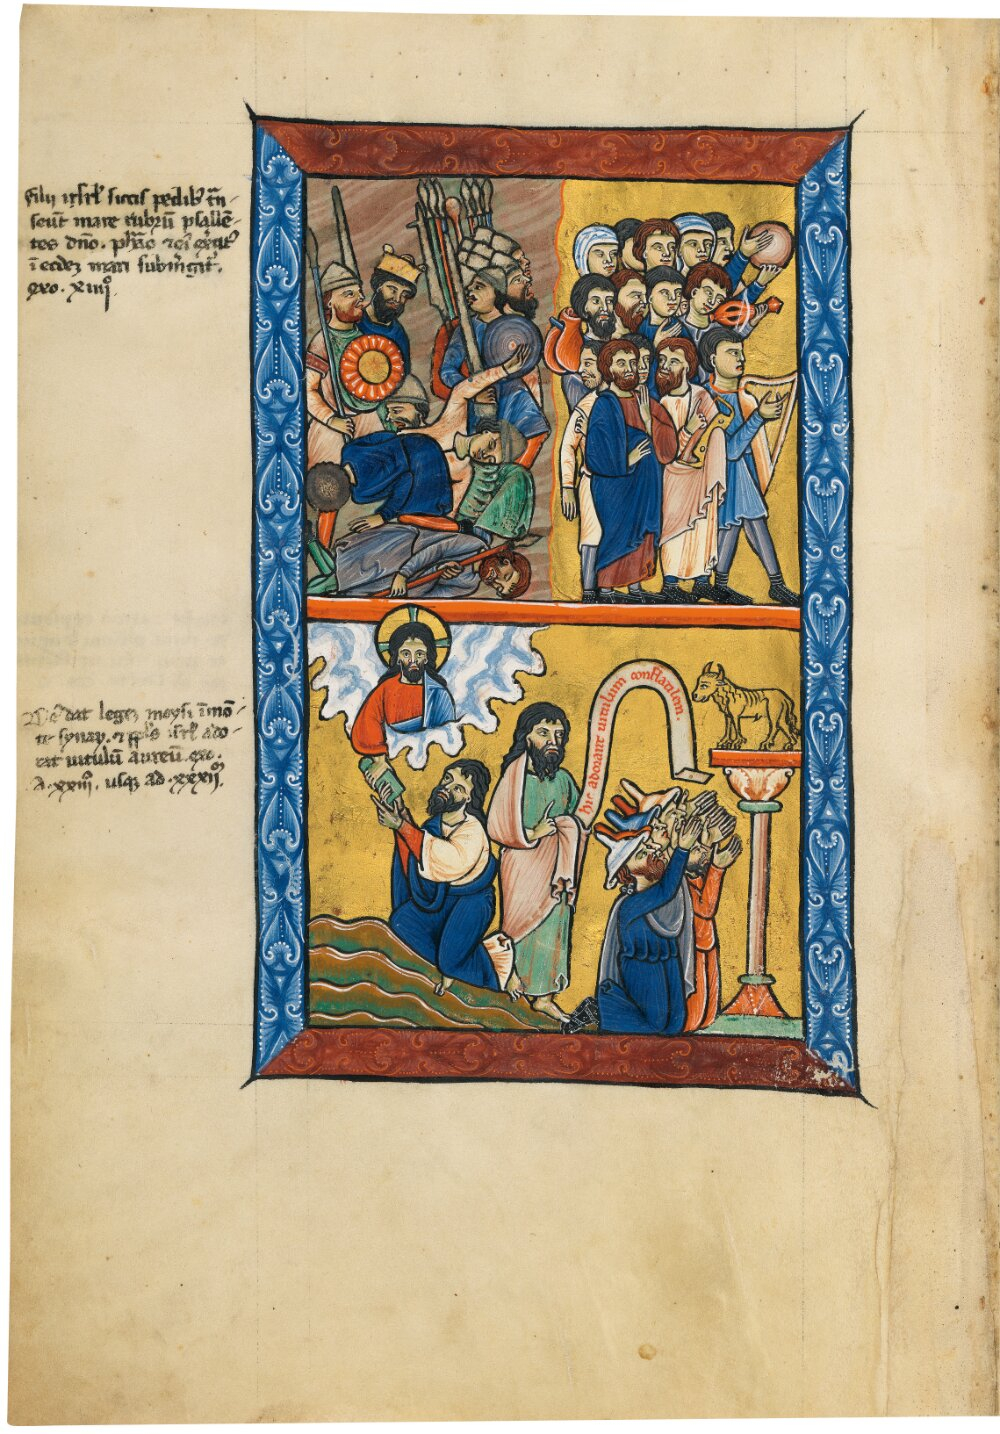 Filii isrl' siccis pedib' tn-
seūt mare rubrū psallē-
tes dn̄o. phao 7 ei exc̄it'
ī eodez mari submergit'.
exo. xiiii°.
dat legez moysi ī mō-
te synay. 7 ppl's isrl' ado-
rat uitulū aureū. exo.
A. xxiii°. usq; ad. xxxii°.
hic adorant uitulum conflatilem.